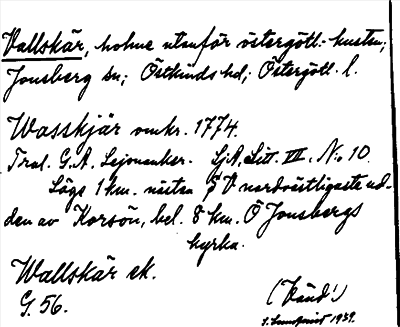 Vallskär, holme utanför östergötl.-kusten;
Jonsberg sn; Östkinds hd; Östergötl. l.
Wasskjär omkr. 1774.
Trol. G.A. Lejonanker. Sj.A. Litt. III. No 10.
Läge 1 km. nästan i V nordvästligaste ud-
den av Korsön, bel. 8 km. O Jonsbergs
kyrka.
Wallskär ek.
G 56.
(Vänd!)
1939.